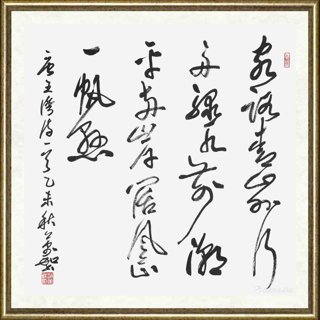 客路青山外行
舟綠水前潮
平兩岸闊風正
一帆懸
唐王灣詩一首乙未秋